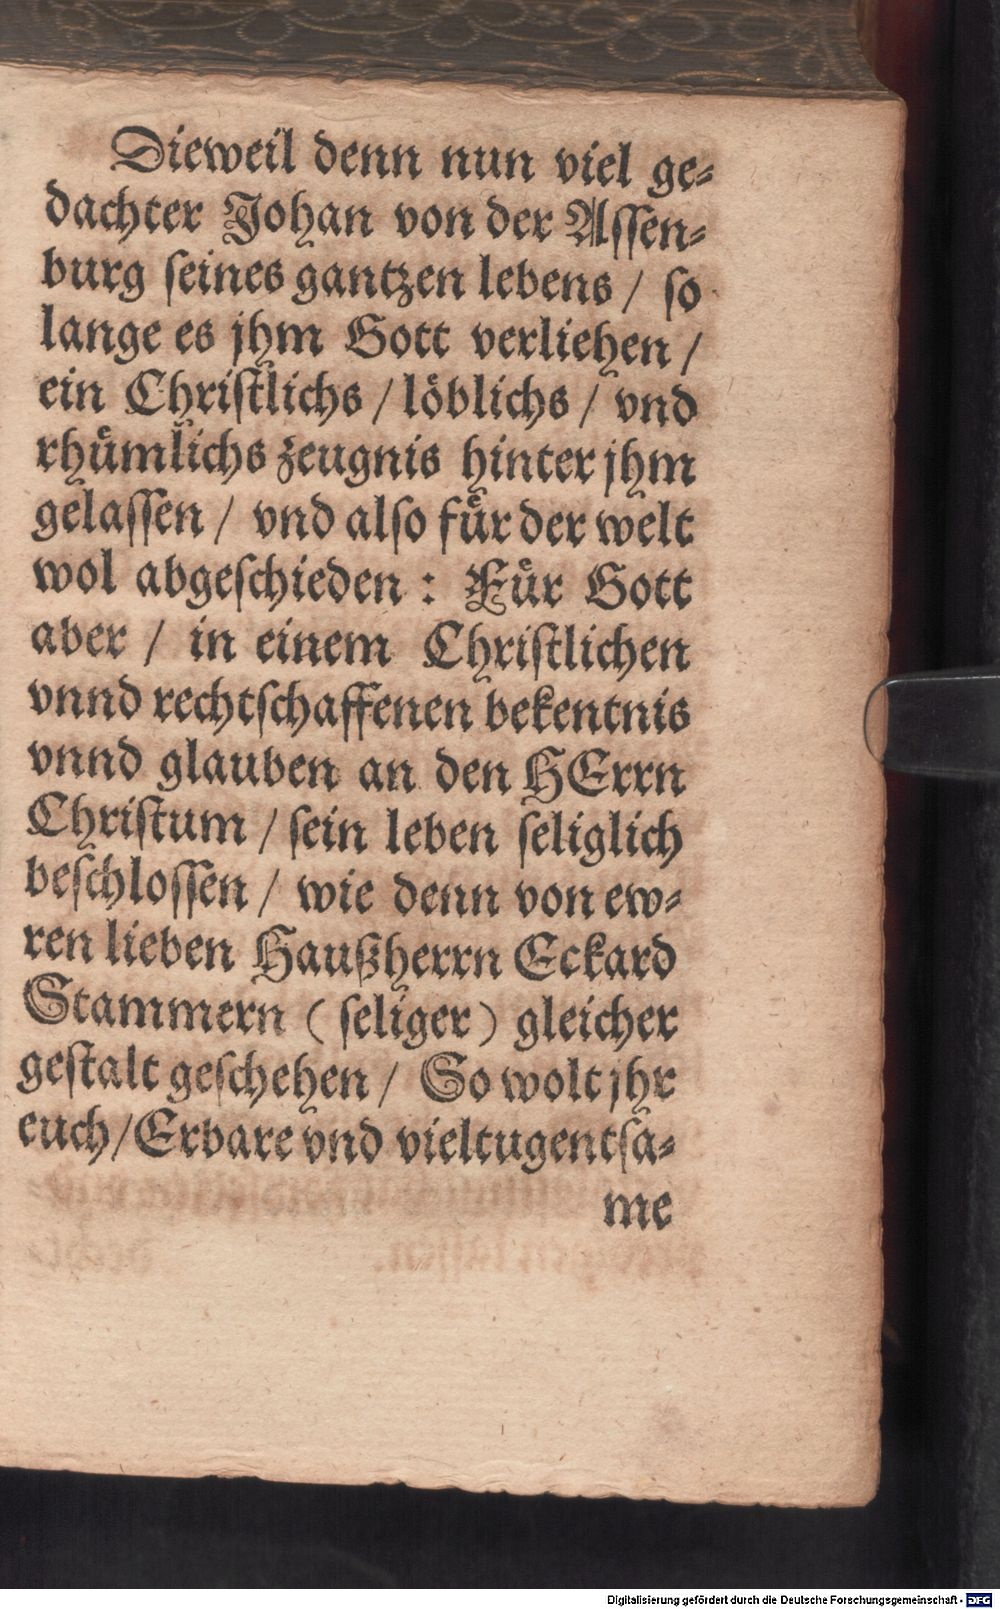 Dieweil denn nun viel ge⸗
dachter Johan von der Assen⸗
burg ſeines gantzen lebens / ſo
lange es jhm Gott verliehen /
ein Chriſtlichs / löblichs / vnd
rhümlichs zeugnis hinter jhm
gelaſſen / vnd alſo für der welt
wol abgeſchieden : Für Gott
aber / in einem Chriſtlichen
vnnd rechtſchaffenen bekentnis
vnnd glauben an den HErrn
Chriſtum / ſein leben ſeliglich
beſchloſſen / wie denn von ew⸗
ren lieben Haußherrn Eckard
Stammern ( ſeliger ) gleicher
geſtalt geſchehen / So wolt jhr
euch / Erbare vnd vieltugentſa⸗
me
Digitalisierung gefördert durch die Deutsche Forschungsgemeinschaft - DFG